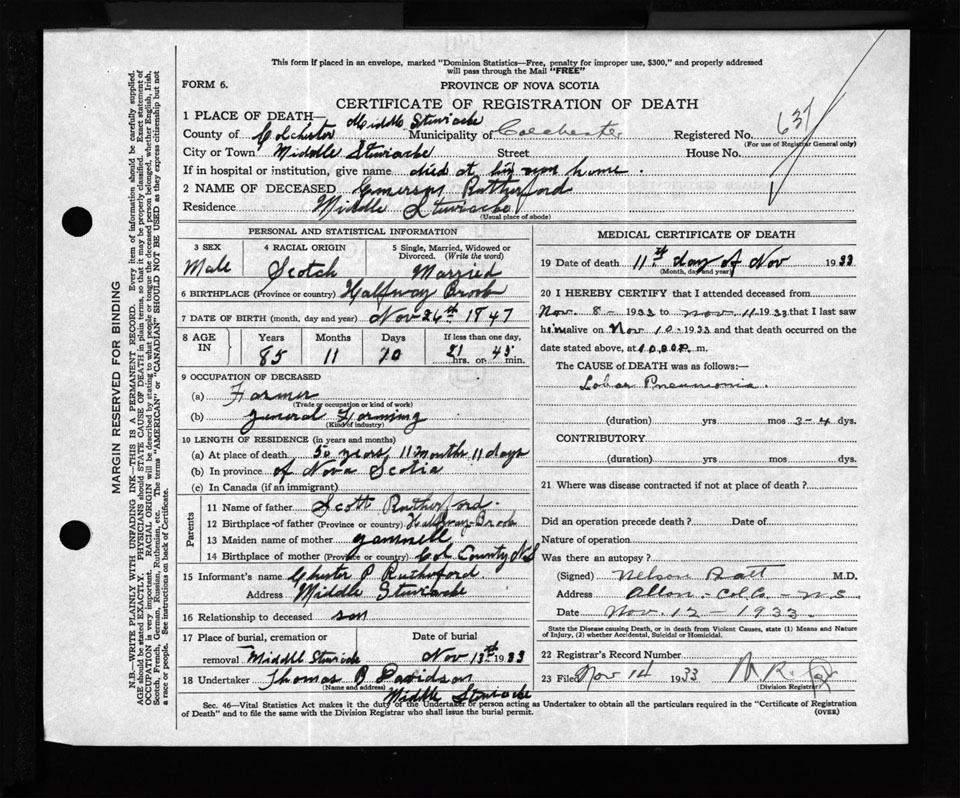 This form if placed in an envelope, marked "Dominion Statistics—Free, penalty for improper use, $300," and properly addressed
will pass through the Mail "FREE"
FORM 6.
PROVINCE OF NOVA SCOTIA
CERTIFICATE OF REGISTRATION OF DEATH
1 PLACE OF DEATH— Middle Stewiacke
County of Colchester Municipality of Colchester Registered No. 637
(For use of Registrar General only)
City or Town Middle Stewiacke Street House No.
If in hospital or institution, give name died at his own home.
2 NAME OF DECEASED Emerson Rutherford
Residence Middle Stewiacke
(Usual place of abode)
PERSONAL AND STATISTICAL INFORMATION
3 SEX 4 RACIAL ORIGIN 5 Single, Married, Widowed or
Divorced. (Write the word)
Male Scotch Married
6 BIRTHPLACE (Province or country) Halfway Brook
7 DATE OF BIRTH (month, day and year) Nov 26th 1847
8 AGE IN Years Months Days If less than one day,
85 11 20 21 hrs. or 45 min.
9 OCCUPATION OF DECEASED
(a) Farmer
(Trade or occupation or kind of work)
(b) General Farming
(Kind of industry)
10 LENGTH OF RESIDENCE (in years and months)
(a) At place of death 50 years, 11 months 11 days
(b) In province of Nova Scotia
(c) In Canada (if an immigrant)
Parents
11 Name of father Scott Rutherford.
12 Birthplace of father (Province or country) Halfway Brook
13 Maiden name of mother Gammell
14 Birthplace of mother (Province or country) Col County N.S
15 Informant's name Chester P Rutherford.
Address Middle Stewiacke
16 Relationship to deceased son
17 Place of burial, cremation or Date of burial
removal Middle Stewiacke Nov 13th 1933
18 Undertaker Thomas B Davidson
(Name and address) Middle Stewiacke
MEDICAL CERTIFICATE OF DEATH
19 Date of death 11th day of Nov 1933
(Month, day and year)
20 I HEREBY CERTIFY that I attended deceased from
Nov. 8- 1933 to Nov. 11 1933 that I last saw
him alive on Nov 10- 1933 and that death occurred on
date stated above, at 10.30P. m.
The CAUSE OF DEATH was as follows:—
Lobar Pneumonia.
(duration) yrs mos 3-4 dys.
CONTRIBUTORY
(duration) yrs mos dys.
21 Where was disease contracted if not at place of death?
Did an operation precede death? Date of
Nature of operation
Was there an autopsy?
(Signed) Nelson Pratt M.D.
Address Alton - Col Co. - N.S
Date Nov. 12 - 1933
State the Disease causing Death, or in death from Violent Causes, state (1) Means and Nature
of Injury, (2) whether Accidental, Suicidal or Homicidal.
22 Registrar's Record Number
23 Filed Nov 14 1933
(Division Registrar)
Sec. 46—Vital Statistics Act makes it the duty of the Undertaker or person acting as Undertaker to obtain all the particulars required in the "Certificate of Registration
of Death" and to file the same with the Division Registrar who shall issue the burial permit. (OVER)
MARGIN RESERVED FOR BINDING
N.B.—WRITE PLAINLY WITH UNFADING INK—THIS IS A PERMANENT RECORD. Every item of information should be carefully supplied.
AGE should be stated EXACTLY. PHYSICIANS should STATE CAUSE OF DEATH in plain terms, so that it may be properly classified. Exact statement of
OCCUPATION is very important. RACIAL ORIGIN will be described by stating to what people or tongue the deceased person belonged, whether English, Irish,
Scotch, French, German, Russian, Ruthenian, etc. The terms "AMERICAN" or "CANADIAN" SHOULD NOT BE USED as they express citizenship but not
a race or people. See instructions on back of Certificate.